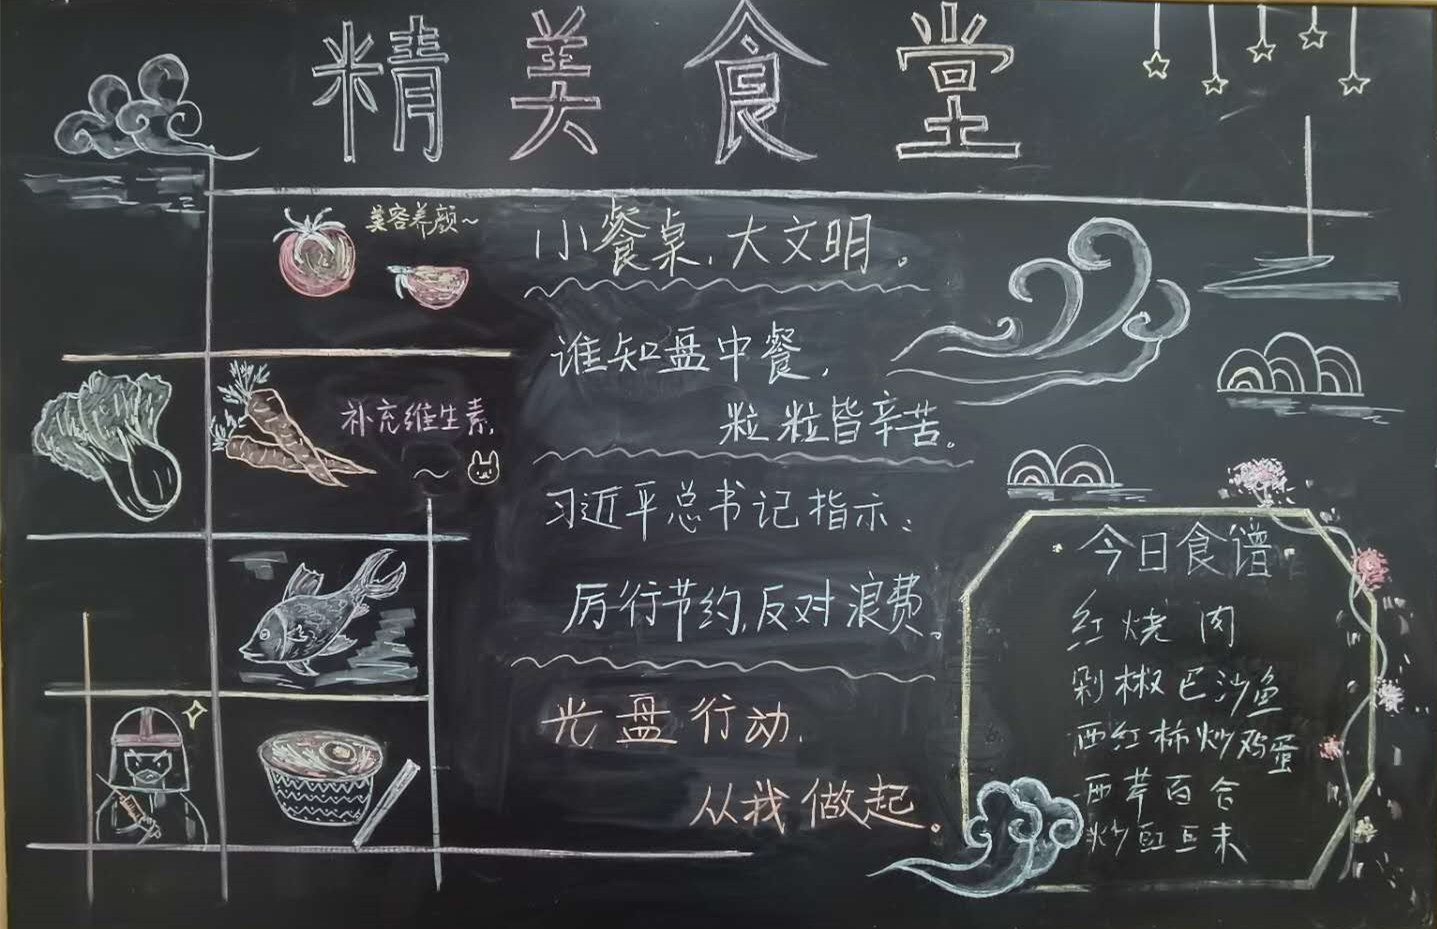 精美食堂
美容养颜~
补充维生素
~
小餐桌,大文明。
谁知盘中餐,
粒粒皆辛苦。
习近平总书记指示:
厉行节约,反对浪费。
光盘行动,
从我做起。
今日食谱
红烧肉
剁椒巴沙鱼
西红柿炒鸡蛋
西芹百合
炒豇豆末